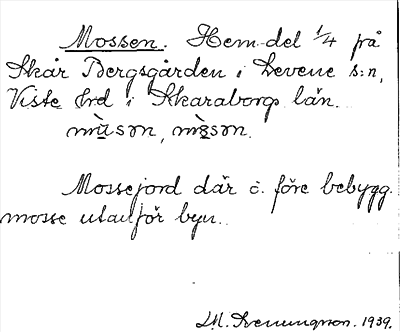 Mossen. Hem-del 1/4 på
Skår Bergsgården i Levene s:n,
Viste hrd i Skaraborgs län.
Mossejord där ö. före bebygg.
mosse utanför byn.
1939.